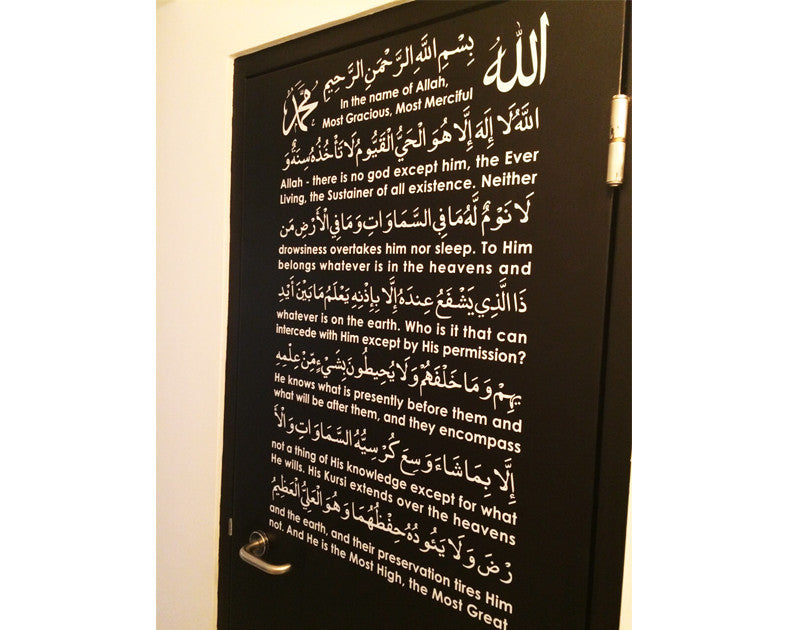 الله
بِسْمِ اللَّهِ الرَّحْمَنِ الرَّحِيمِ
محمد
In the name of Allah,
Most Gracious, Most Merciful
اللَّهُ لَا إِلَهَ إِلَّا هُوَ الْحَيُّ الْقَيُّومُ لَا تَأْخُذُهُ سِنَةٌ وَ
Allah - there is no god except him, the Ever
Living, the Sustainer of all existence. Neither
لَا نَوْمٌ لَهُ مَا فِي السَّمَاوَاتِ وَمَا فِي الْأَرْضِ مَن
drowsiness overtakes him nor sleep. To Him
belongs whatever is in the heavens and
ذَا الَّذِي يَشْفَعُ عِندَهُ إِلَّا بِإِذْنِهِ يَعْلَمُ مَا بَيْنَ أَيْدِ
whatever is on the earth. Who is it that can
intercede with Him except by His permission?
يهِمْ وَمَا خَلْفَهُمْ وَلَا يُحِيطُونَ بِشَيْءٍ مِّنْ عِلْمِهِ
He knows what is presently before them and
what will be after them, and they encompass
إِلَّا بِمَا شَاءَ وَسِعَ كُرْسِيُّهُ السَّمَاوَاتِ وَالْأَ
not a thing of His knowledge except for what
He wills. His Kursi extends over the heavens
رْضَ وَلَا يَئُودُهُ حِفْظُهُمَا وَهُوَ الْعَلِيُّ الْعَظِيمُ
and the earth, and their preservation tires Him
not. And He is the Most High, the Most Great